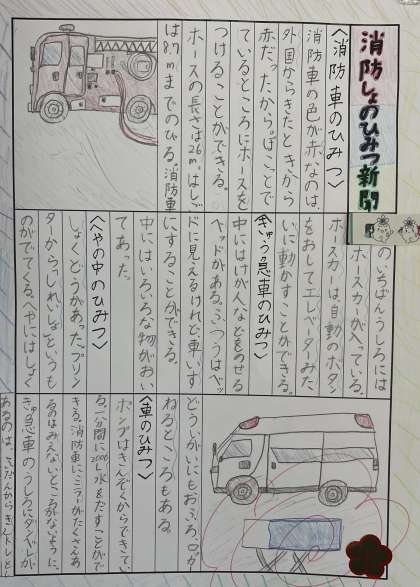 消防しょのひみつ新聞
〈消防車のひみつ〉
消防車の色が赤なのは、
外国からきたときから
赤だったから。ぼこっとで
ているところにホースを
つけることができる。
ホースの長さは26m、はしご
は87mまでのびる。消防車
のいちばんうしろには
ホースカーが入っている。
ホースカーは自動のボタン
をおしてエレベーターみた
いに動かすことができる。
〈きゅう急車のひみつ〉
中にはけが人などをのせる
ベッドがある。ふつうはベッ
ドに見えるけれど車いす
にすることができる。
中にはいろいろな物がおい
てあった。
〈へやの中のひみつ〉
しょくどうがあった。プリン
ターから「しれいしょ」というも
のがでてくる。へやにはしょく
どういがいにもおふろ、
ねるところもある。
〈車のひみつ〉
ポンプはきんぞくからできてい
る。一分間に 水をだすことがで
きる。消防車にミラーがたくさんあ
るのはみえないところがないように。
きゅう急車のうしろに
あるのは、